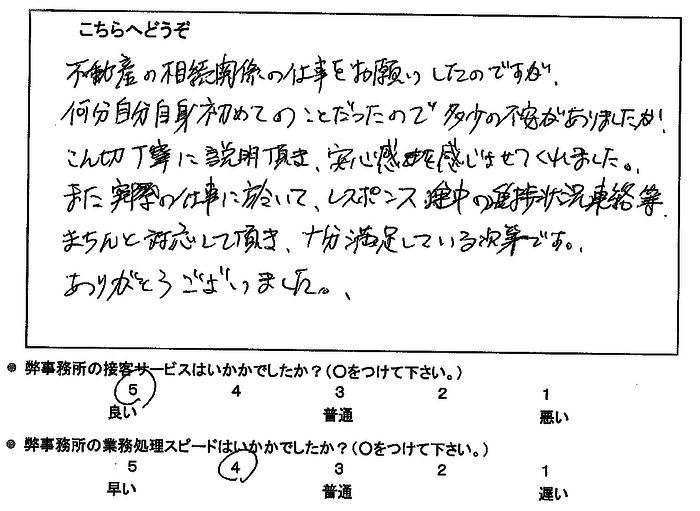 こちらへどうぞ
不動産の相続関係の仕事をお願いしたのですが、
何分自分自身初めてのことだったので多少の不安がありましたが、
こん切丁寧に説明頂き、安心感を感じさせてくれました。
また実際の仕事に於いて、レスポンス、途中の進捗状況連絡等、
きちんと対応して頂き、十分満足している次第です。
ありがとうございました。
● 弊事務所の接客サービスはいかかでしたか？(〇をつけて下さい。)
5 4 3 2 1
良い 普通 悪い
● 弊事務所の業務処理スピードはいかかでしたか？(〇をつけて下さい。)
5 4 3 2 1
早い 普通 遅い